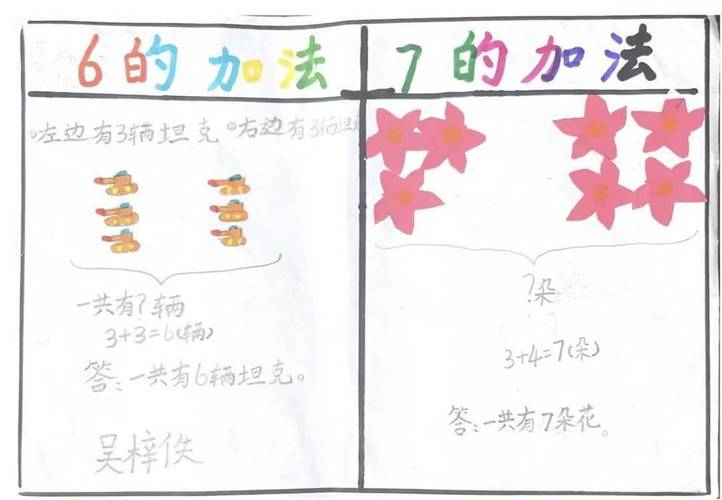 6的加法
左边有3辆坦克 右边有3辆坦克
一共有?辆
3+3=6(辆)
答:一共有6辆坦克。
吴梓佚
7的加法
?朵
3+4=7(朵)
答:一共有7朵花。